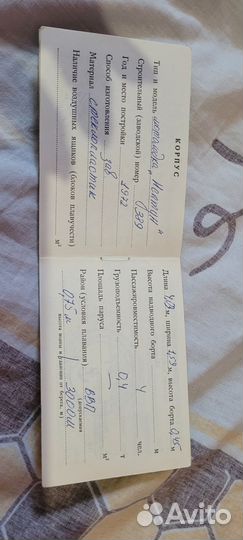 КОРПУС
Тип и модель мотолодка „Нептун"
Строительный (заводской) номер 0389
Год и место постройки 1972
Способ изготовления зав
Материал стеклопластик
Наличие воздушных ящиков (блоков плавучести)
м³
Длина м, ширина 1,53 м, высота борта 0,45 м
Высота надводного борта м
Пассажировместимость 4 чел.
Грузоподъемность 0,4 т
Площадь паруса — м²
Район (условия плавания) ВВП
(допускаемая
0,75 м / 3000 м
высота волны и удаление от берега, м)
Avito